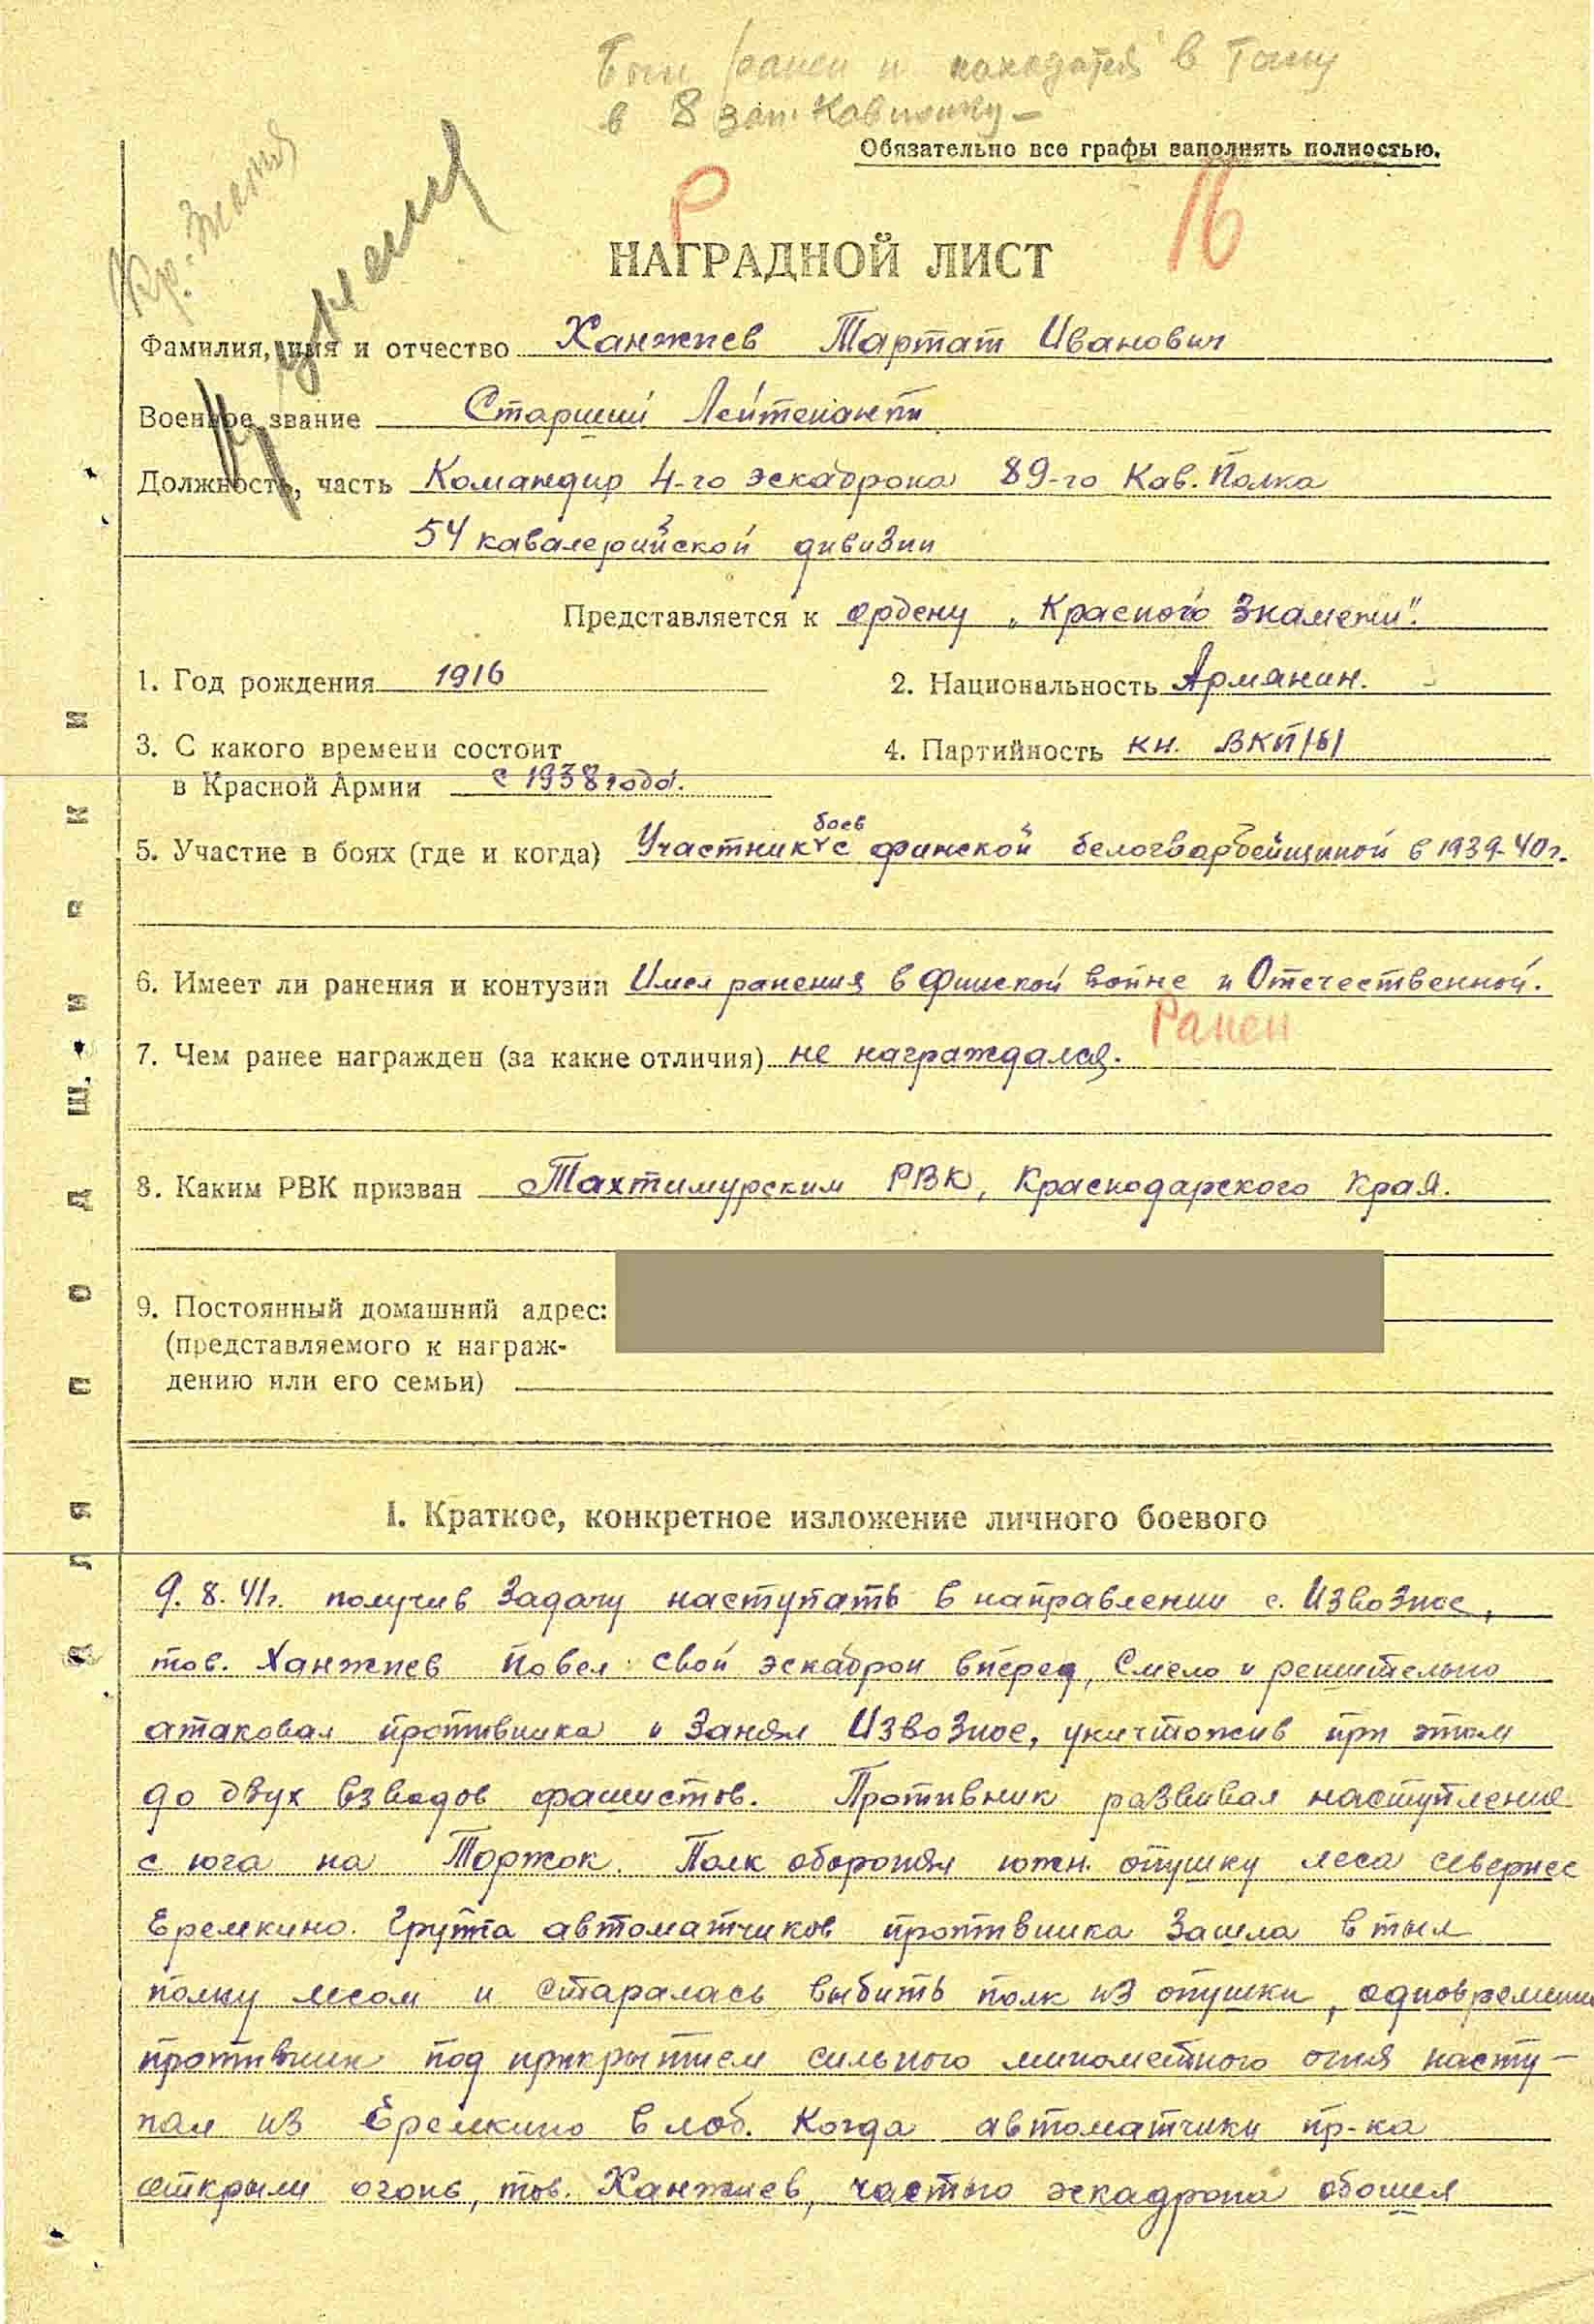 Был ранен и находится в тылу
в 8 зап. Кавполку –
Обязательно все графы заполнять полностью.
Кр. Знамя
Р
16
НАГРАДНОЙ ЛИСТ
Фамилия, имя и отчество Ханжиев Тартат Иванович
Военное звание Старший Лейтенант
Должность, часть Командир 4-го эскадрона 89-го Кав. Полка
54 кавалерийской дивизии
Представляется к ордену „Красного Знамени".
1. Год рождения 1916
2. Национальность Армянин.
3. С какого времени состоит
в Красной Армии с 1938 года.
4. Партийность кн. ВКП/б/
5. Участие в боях (где и когда) Участник боев с финской белогвардейщиной в 1939-40г.
6. Имеет ли ранения и контузии Имел ранения в Финской войне и Отечественной.
Ранен
7. Чем ранее награжден (за какие отличия) не награждался.
8. Каким РВК призван Тахтимурским РВК, Краснодарского Края.
9. Постоянный домашний адрес:
(представляемого к награж-
дению или его семьи)
I. Краткое, конкретное изложение личного боевого
9.8.41г. получив задачу наступать в направлении с. Извозное,
тов. Ханжиев повел свой эскадрон вперед, Смело и решительно
атаковал противника и Занял Извозное, уничтожив при этом
до двух взводов фашистов. Противник развивал наступление
с юга на Торжок. Полк оборонял южн. опушку леса севернее
Еремкино. Группа автоматчиков противника Зашла в тыл
полку лесом и старалась выбить полк из опушки, одновременно
противник под прикрытием сильного минометного огня насту-
пал из Еремкино в лоб. Когда автоматчики пр-ка
открыли огонь, тов. Ханжиев, частью эскадрона обошел
ДЛЯ ПОДШИВКИ